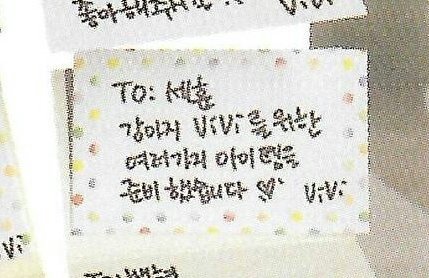 ViVi
TO: 세훈
강아지 ViVi를 위한
여러가지 아이템을
준비했습니다 ♡ ViVi
Vi